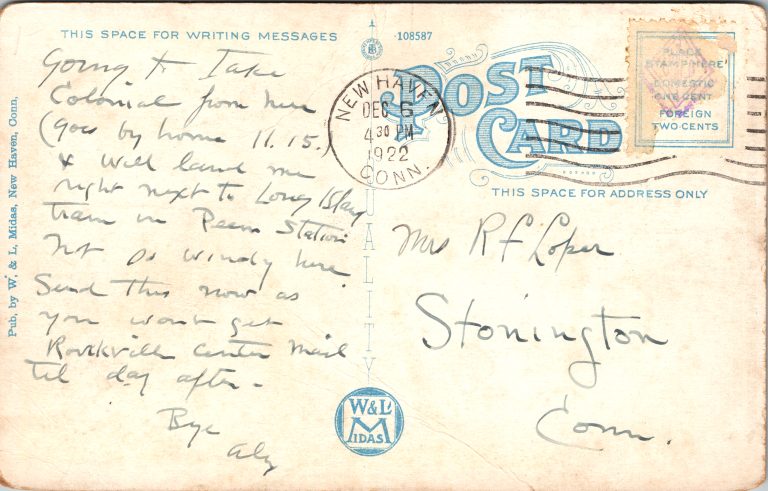 THIS SPACE FOR WRITING MESSAGES
108587
Going to Take
Colonial from here
(Goes by home 11.15.)
& will land me
right next to Long Island
train in Penn Station
Not so windy here
Send this now as
you wont get
Rockville Center mail
til day after-
Bye
Pub. by W. & L. Midas, New Haven, Conn.
QUALITY
W&L
MIDAS
POST
CARD
NEW HAVEN
DEC 6
4 30 PM
1922
CONN.
PLACE
STAMP HERE
DOMESTIC
ONE CENT
FOREIGN
TWO CENTS
THIS SPACE FOR ADDRESS ONLY
Mrs R F Loper
Stonington
Conn.